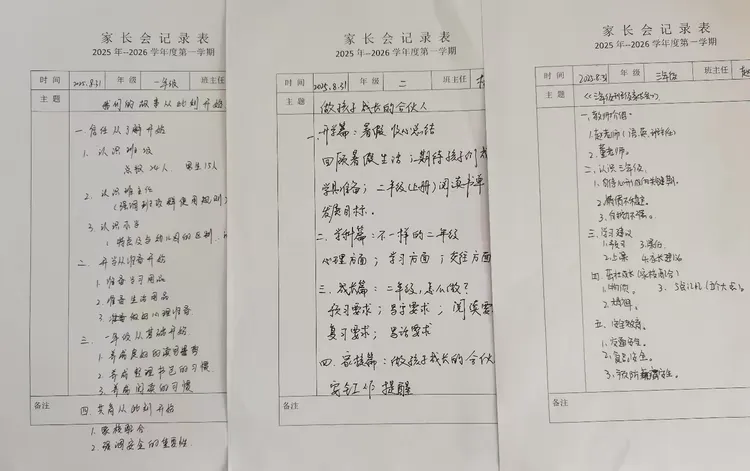 家长会记录表
2025年--2026学年度第一学期
时间 2025.8.31 年级 一年级 班主任
主题 我们的故事从此刻开始
一 信任从了解开始
1. 认识班级
总数24人 男生15人
2. 认识班主任
(强调班级群使用规则)
3. 认识孩子
(特点及与幼儿园的区别
二 开学从准备开始
1. 准备学习用品
2. 准备生活用品
3. 准备较好的心理准备
三. 一年级从基础开始
1. 养成良好的读书
2. 养成整理书包的习惯
3. 养成阅读的习惯
备注
四. 共育从此刻开始
1. 家校配合
2. 强调安全的重要性
家长会记录表
2025年--2026学年度第一学期
时间 2025.8.31 年级 二 班主任
主题 做孩子成长的合伙人
一. 开学篇: 暑假收心总结
回顾暑假生活; 期待孩子们
学具准备; 二年级(上册)阅读书单
发展目标.
二. 特种篇: 不一样的二年级
心理方面; 学习方面; 交往方面
三. 成长篇: 二年级, 怎么做?
预习要求; 写字要求; 阅读要
复习要求; 书话要求
四. 家校篇: 做孩子成长的合伙
备注
家长会记录表
2025年--2026学年度第一学期
时间 2025.8.31 年级 三年级 班主任
主题
一. 教师介绍.
1. 赵老师
2. 董老师.
二. 认识三年级.
1. 习惯形成的关键期.
2. 情绪不稳定.
3. 自制力不强.
三. 学习建议
1. 预习 3.
2. 上课 4.
四. 家校 (家校配合)
五. 安全教育.
1. 交通安全.
2. 食品安全.
3. 预防 安全.
备注